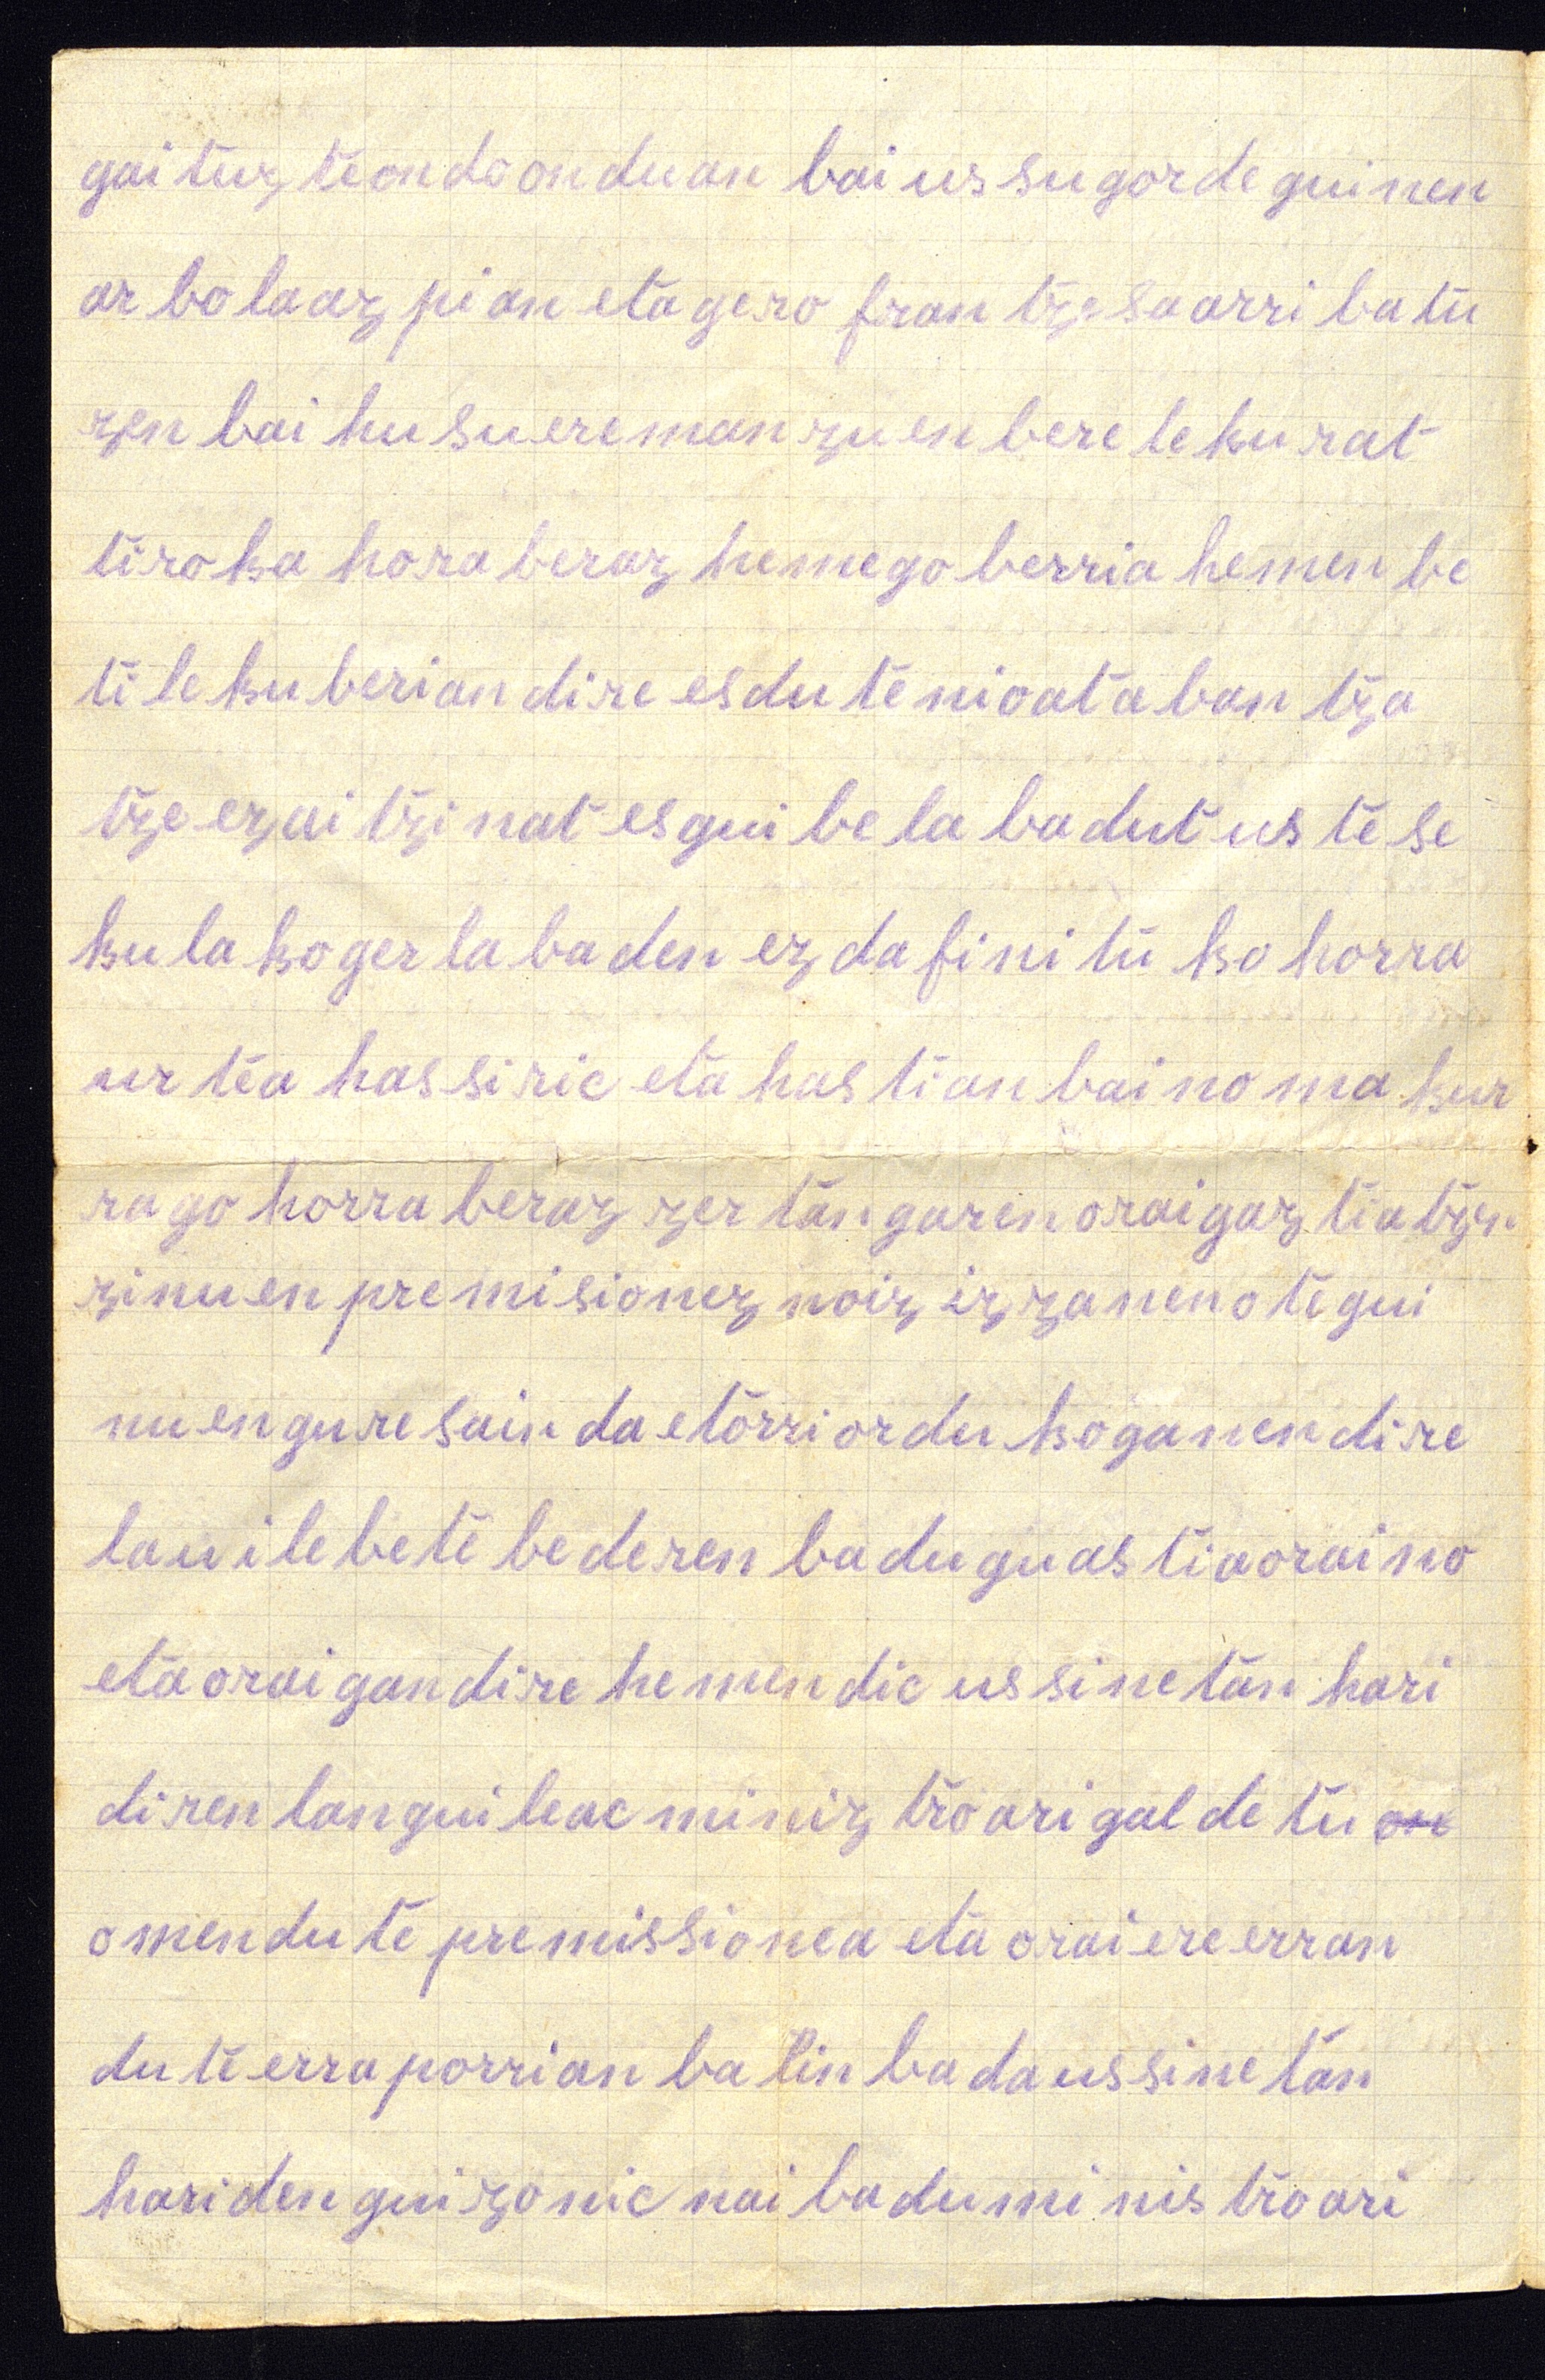 gaituz te ondo onduan bai ussu gorde guinen
ar bola azpian eta gero frantzesa arribatu
zen bai husu ereman zuen bere lekurat
tiroka hora beraz hemego berria hemen be
ti leku berian dire esdute nioata bantza
tze ez aitzinat es guibela badut uste se
kulako gerla baden ez da finituko horra
urtea hassiric eta hastian baino makur
rago horra beraz zertan garen orai gaztiatzen
zinuen premisionez noiz izzanen ote gui
nuen gure sainda etorri orduko ganen dire
lau ilebete bederen badugu astia oraino
eta orai gan dire hemendic ussinetan hari
diren languileac miniztroari galdetu
omen dute premissionea eta orai ere erran
dute erraporrian batin bada ussinetan
hari den guizonic nai badu ministroari